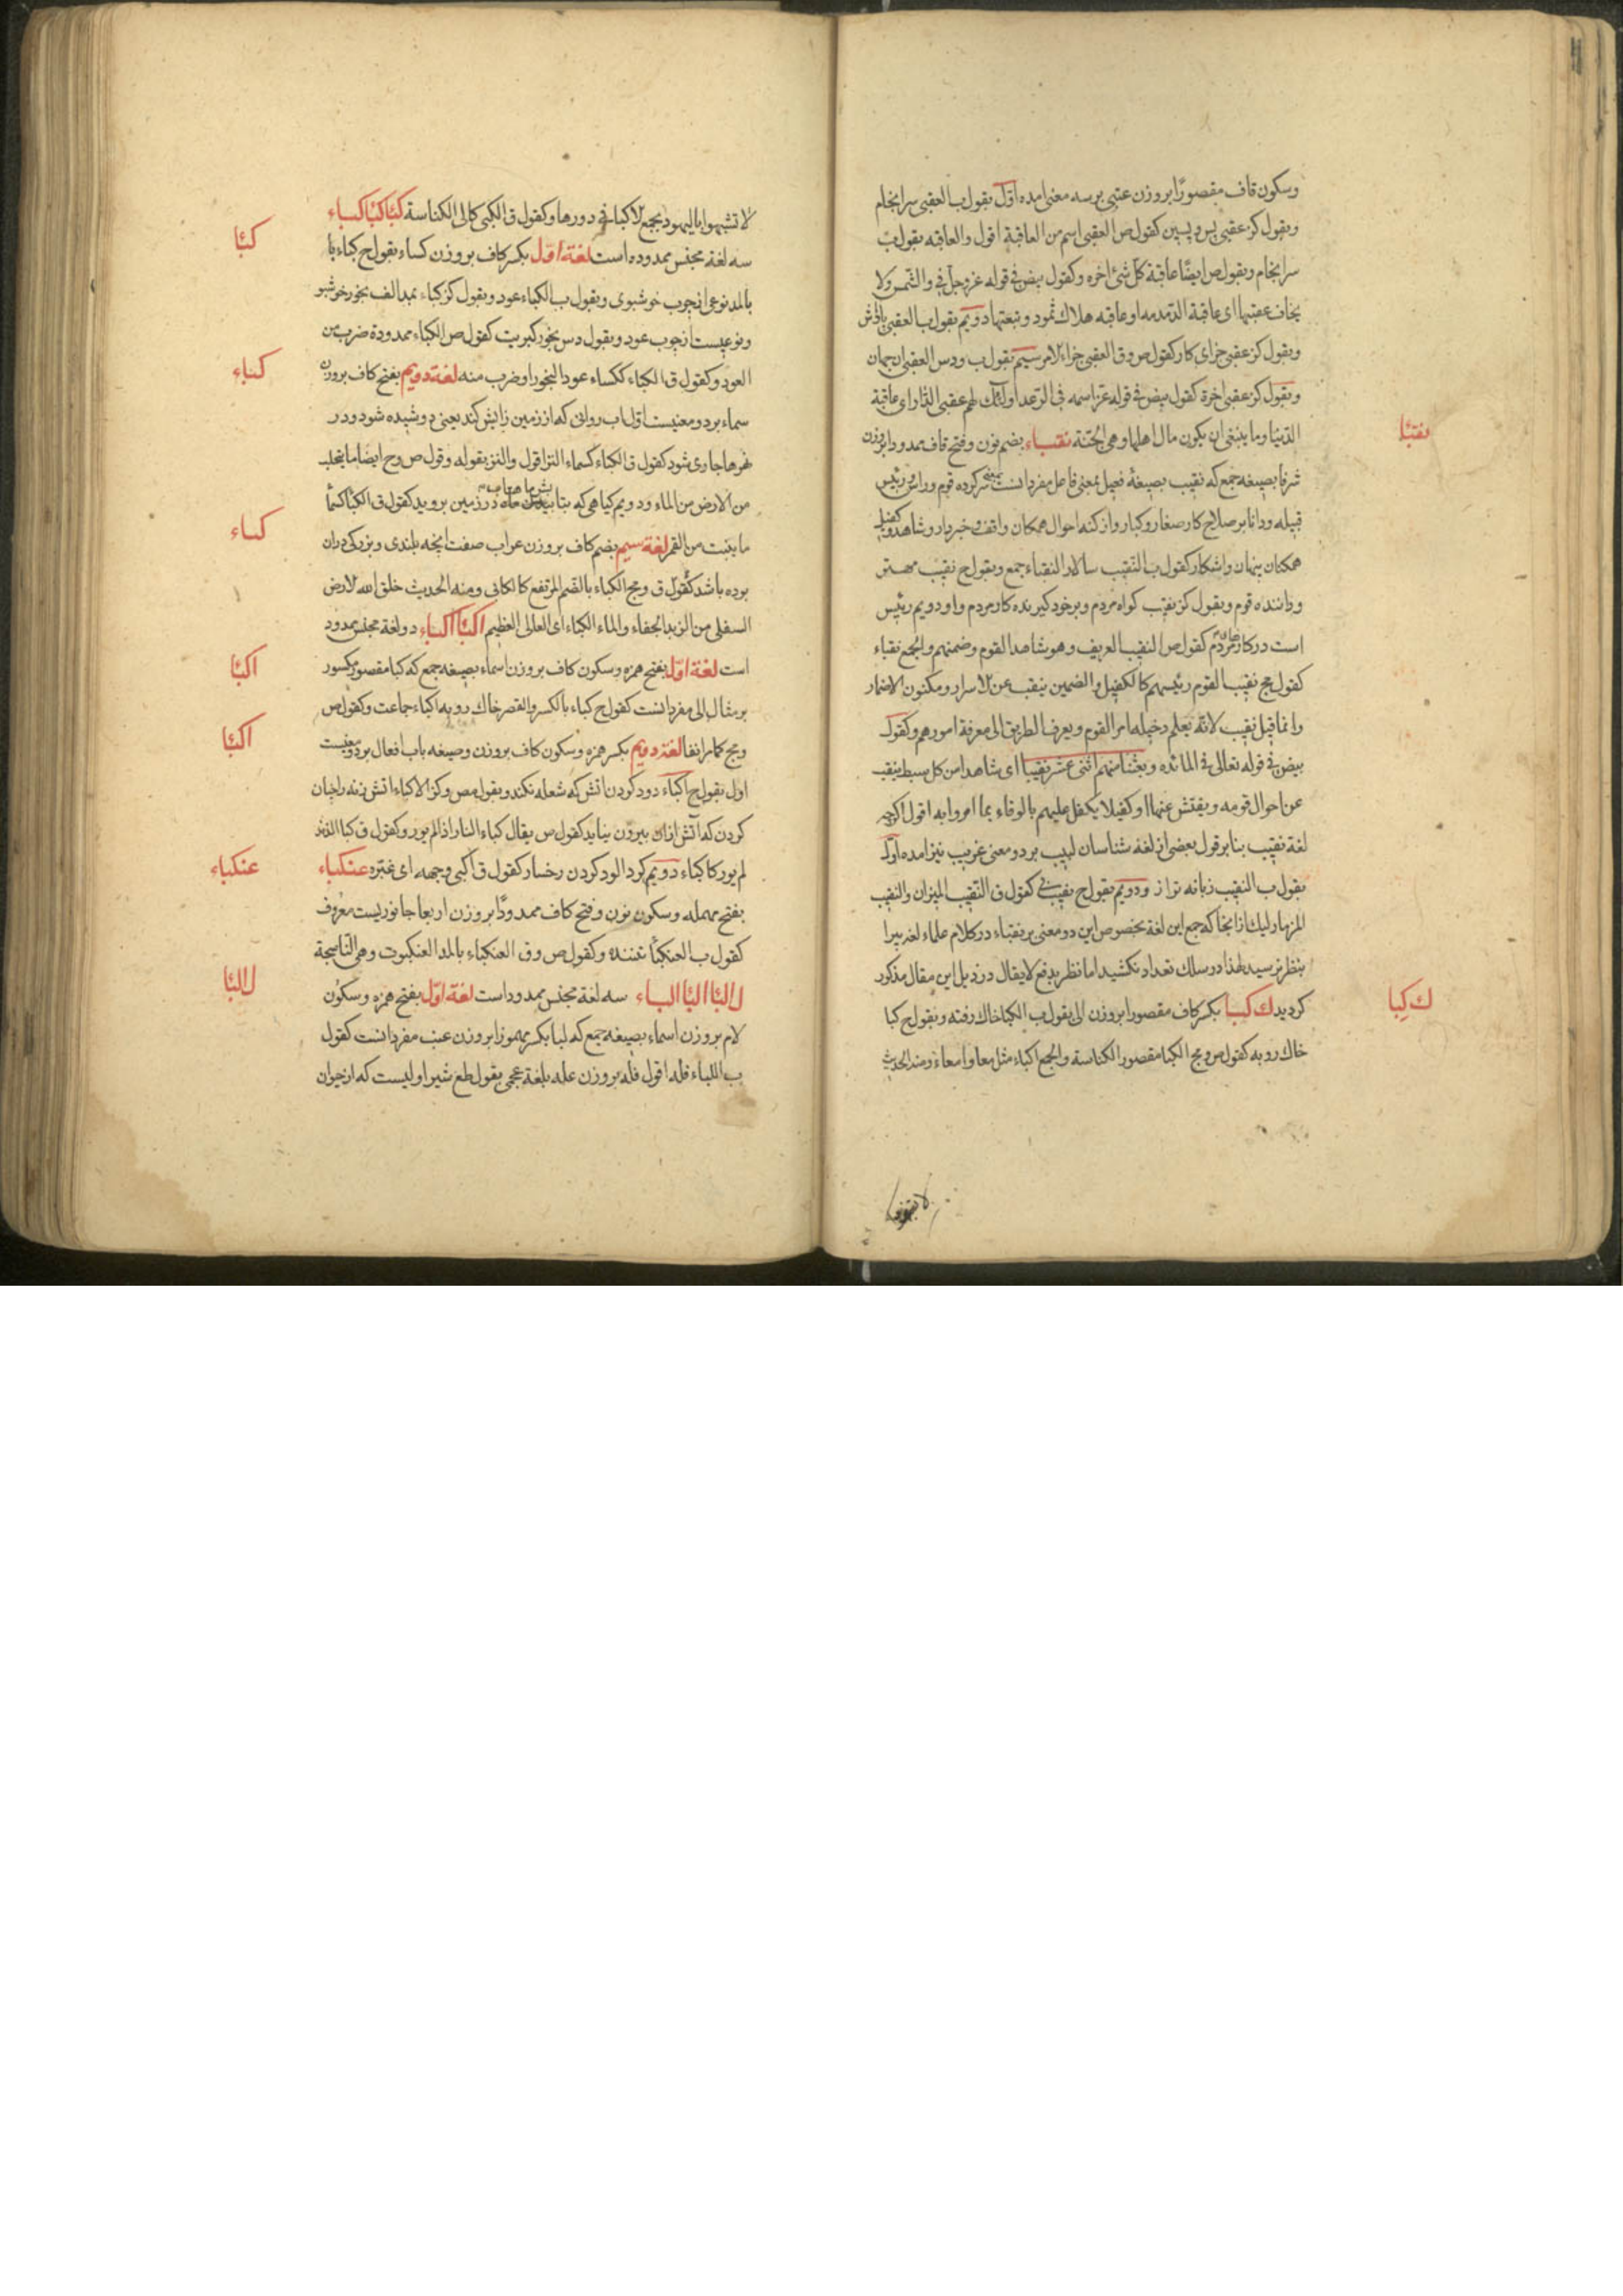 وسکون قاف مقصورًا بروزن عتبی برسه معنی امده اوّل بقول ب العقبی سرانجام
وبقول کز عقبی پس و پسین کقول ص العقبی اسم من العاقبة اقول والعاقبه بقول ب
سرانجام وبقول ص ایضًا عاقبة کلّ شئ اخره وکقول بیض فی قوله عزوجلّ فی والشّمس ولا
یخاف عقبیها ای عاقبة الدّمدمه او عاقبه هلاک ثمود وتبعتها دویم بقول ب العقبی پاداش
وبقول کز عقبی جزای کار کقول ص وق العقبی جزاء الامر سیم بقول ب ودس العقبی ان جهان
وبقول کز عقبی اخرة کقول بیض فی قوله عزّ اسمه فی الرّعد اولئک لهم عقبی الدّار ای عاقبة
الدّنیا وما ینبغی ان یکون مال اهلها وهی الجنّة نقباء بضم نون وفتح قاف ممدودا بروزن
نقبا
شرفا بصیغه جمع که نقیب بصیغهٔ فعیل بمعنی فاعل مفرد انست بمعنی سرکرده قوم ورئیس
قبیله ودانا بر صلاح کار صغار وکبار واز کنه احوال همکان واقف وخبردار وشاهد وکفیل
همکنان پنهان واشکار کقول ب النّقیب سالار النقباء جمع وبقول ج نقیب مهتر
وداننده قوم وبقول کز نقیب کواه مردم وبرخود کیرنده کار مردم واو دویم رئیس
است در کار مردم کقول ص النقیب العریف وهو شاهد القوم وضمنهم والجمع نقباء
کقول مج نقیب القوم رئیسهم کالکفیل والضمین ینقب عن الاسرار ومکنون الاضمار
وانما قیل نقیب لانّه یعلم دخیله امر القوم ویعرف الطریق الی معرفة امورهم وکقول
بیض فی قوله تعالی فی المائده وبعثنا منهم اثنی عشر نقیبا ای شاهدا من کل سبط ینقب
عن احوال قومه ویفتش عنها او کفیلا یکفل علیهم بالوفاء بما امروا به اقول اکرچه
لغة نقیب بنابر قول بعضی از لغة شناسان لبیب بر دو معنی غریب نیز امده اوّل
بقول ب النقیب زبانه ترازو دویم بقول ج نقیب کقول ق النّقیب المیزان والنقیب
المزمار لیک از انجا که جمع این لغة بخصوص این دو معنی بر نقباء در کلام علماء لغة پیرا
بنظر نرسید لهذا در سلک تعداد نکشید اما نظر بدفع لا یقال در ذیل این مقال مذکور
کردید ک کبا بکسر کاف مقصورا بروزن الی بقول ب الکبا خاک رفته وبقول ج کبا
ک کِبا
خاک روبه کقول ص ومج الکبا مقصور الکناسة والجمع اکباء مثل معا وامعاء ومنه الحدیث
لا تشبهوا بالیهود یجمع الاکباء فی دورها وکقول ق الکبی کالی الکناسة کبًا کبًا کباء
کبًا
سه لغة مجنس ممدوده است لغة اوّل بکسر کاف بروزن کساء بقول ج کباء با
بالمد نوعی از چوب خوشبوی وبقول ب الکباء عود وبقول کز کباء بمد الف بخور خوشبو
ونوعیست از چوب عود وبقول دس بخور کبریت کقول ص الکباء ممدودة ضرب من
العود وکقول ق الکباء ککساء عود البخور او ضرب منه لغة دویم بفتح کاف بروزن
کباء
سماء بر دو معنیست اوّل اب روانی که از زمین زایش کند یعنی دوشیده شود ودر
نهرها جاری شود کقول ق الکباء کسماء النز اقول والنز بقوله وقول ص وح ایضا ما یتحلب
من الارض من الماء ودویم کیاهی که بتابش ماهتاب در زمین بروید کقول ق الکبا کما
کباء
ما ینبت من القمر لغة سیم بضم کاف بروزن عراب صفت انچه بلندی وبزرکی دران
بوده باشد کقول ق ومج الکباء بالضم المرتفع کالکابی ومنه الحدیث خلق الله الارض
السفلی من الزبد الجفاء والماء الکباء ای العالی العظیم اکبًا اکباء دو لغة مجنس ممدود
است لغة اوّل بفتح همزه وسکون کاف بروزن اسماء بصیغه جمع که کبا مقصور مکسور
اکبًا
بر مثال الی مفرد انست کقول ج کباء بالکسر والقصر خاک روبه اکباء جماعت وکقول ص
ومج کما مر انفا لغة دویم بکسر همزه وسکون کاف بروزن وصیغه باب افعال بر دو معنیست
اکبًا
اول بقول ج اکباء دود کردن اتش که شعله نکند وبقول مص وکز الاکباء اتش زنه را چنان
کردن که آتش ازان بیرون نیاید کقول ص یقال کباء النار اذا لم یور وکقول ق کبا الزند
لم یور کاکباء دویم کرد الود کردن رخسار کقول ق اکبی وجهه ای غبّره عنکباء
عنکباء
بفتح مهمله وسکون نون وفتح کاف ممدودًا بروزن اربعا جانوریست معروف
کقول ب العنکبًا تننده وکقول ص وق العنکباء بالمد العنکبوت وهی النّاسجة
ل البًا البًا الباء سه لغة مجنس ممدود است لغة اوّل بفتح همزه وسکون
ل البًا
لام بروزن اسماء بصیغه جمع که لبا بکسر مهموزا بروزن عنب مفرد انست کقول
ب اللباء فله اقول فله بروزن عله بلغة عجمی بقول طع شیر اولیست که از حیوان